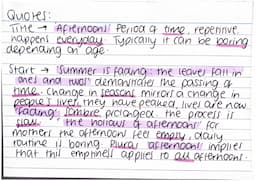 Quotes:
Title → 'Afternoons' Period of time, repetitive
happens everyday. Typically it can be boring
depending on age.
Start → 'Summer is fading: the leaves fall in
ones and twos' demonstrates the passing of
time. Change in seasons mirrors a change in
people's lives, they have peaked, lives are now
'fading'. Sombre prolonged. the process is
slow. 'the hollows of afternoons' for
mothers the afternoon feel empty, daily
routine is boring. Plural 'afternoons' implies
that this emptiness applies to all afternoons.